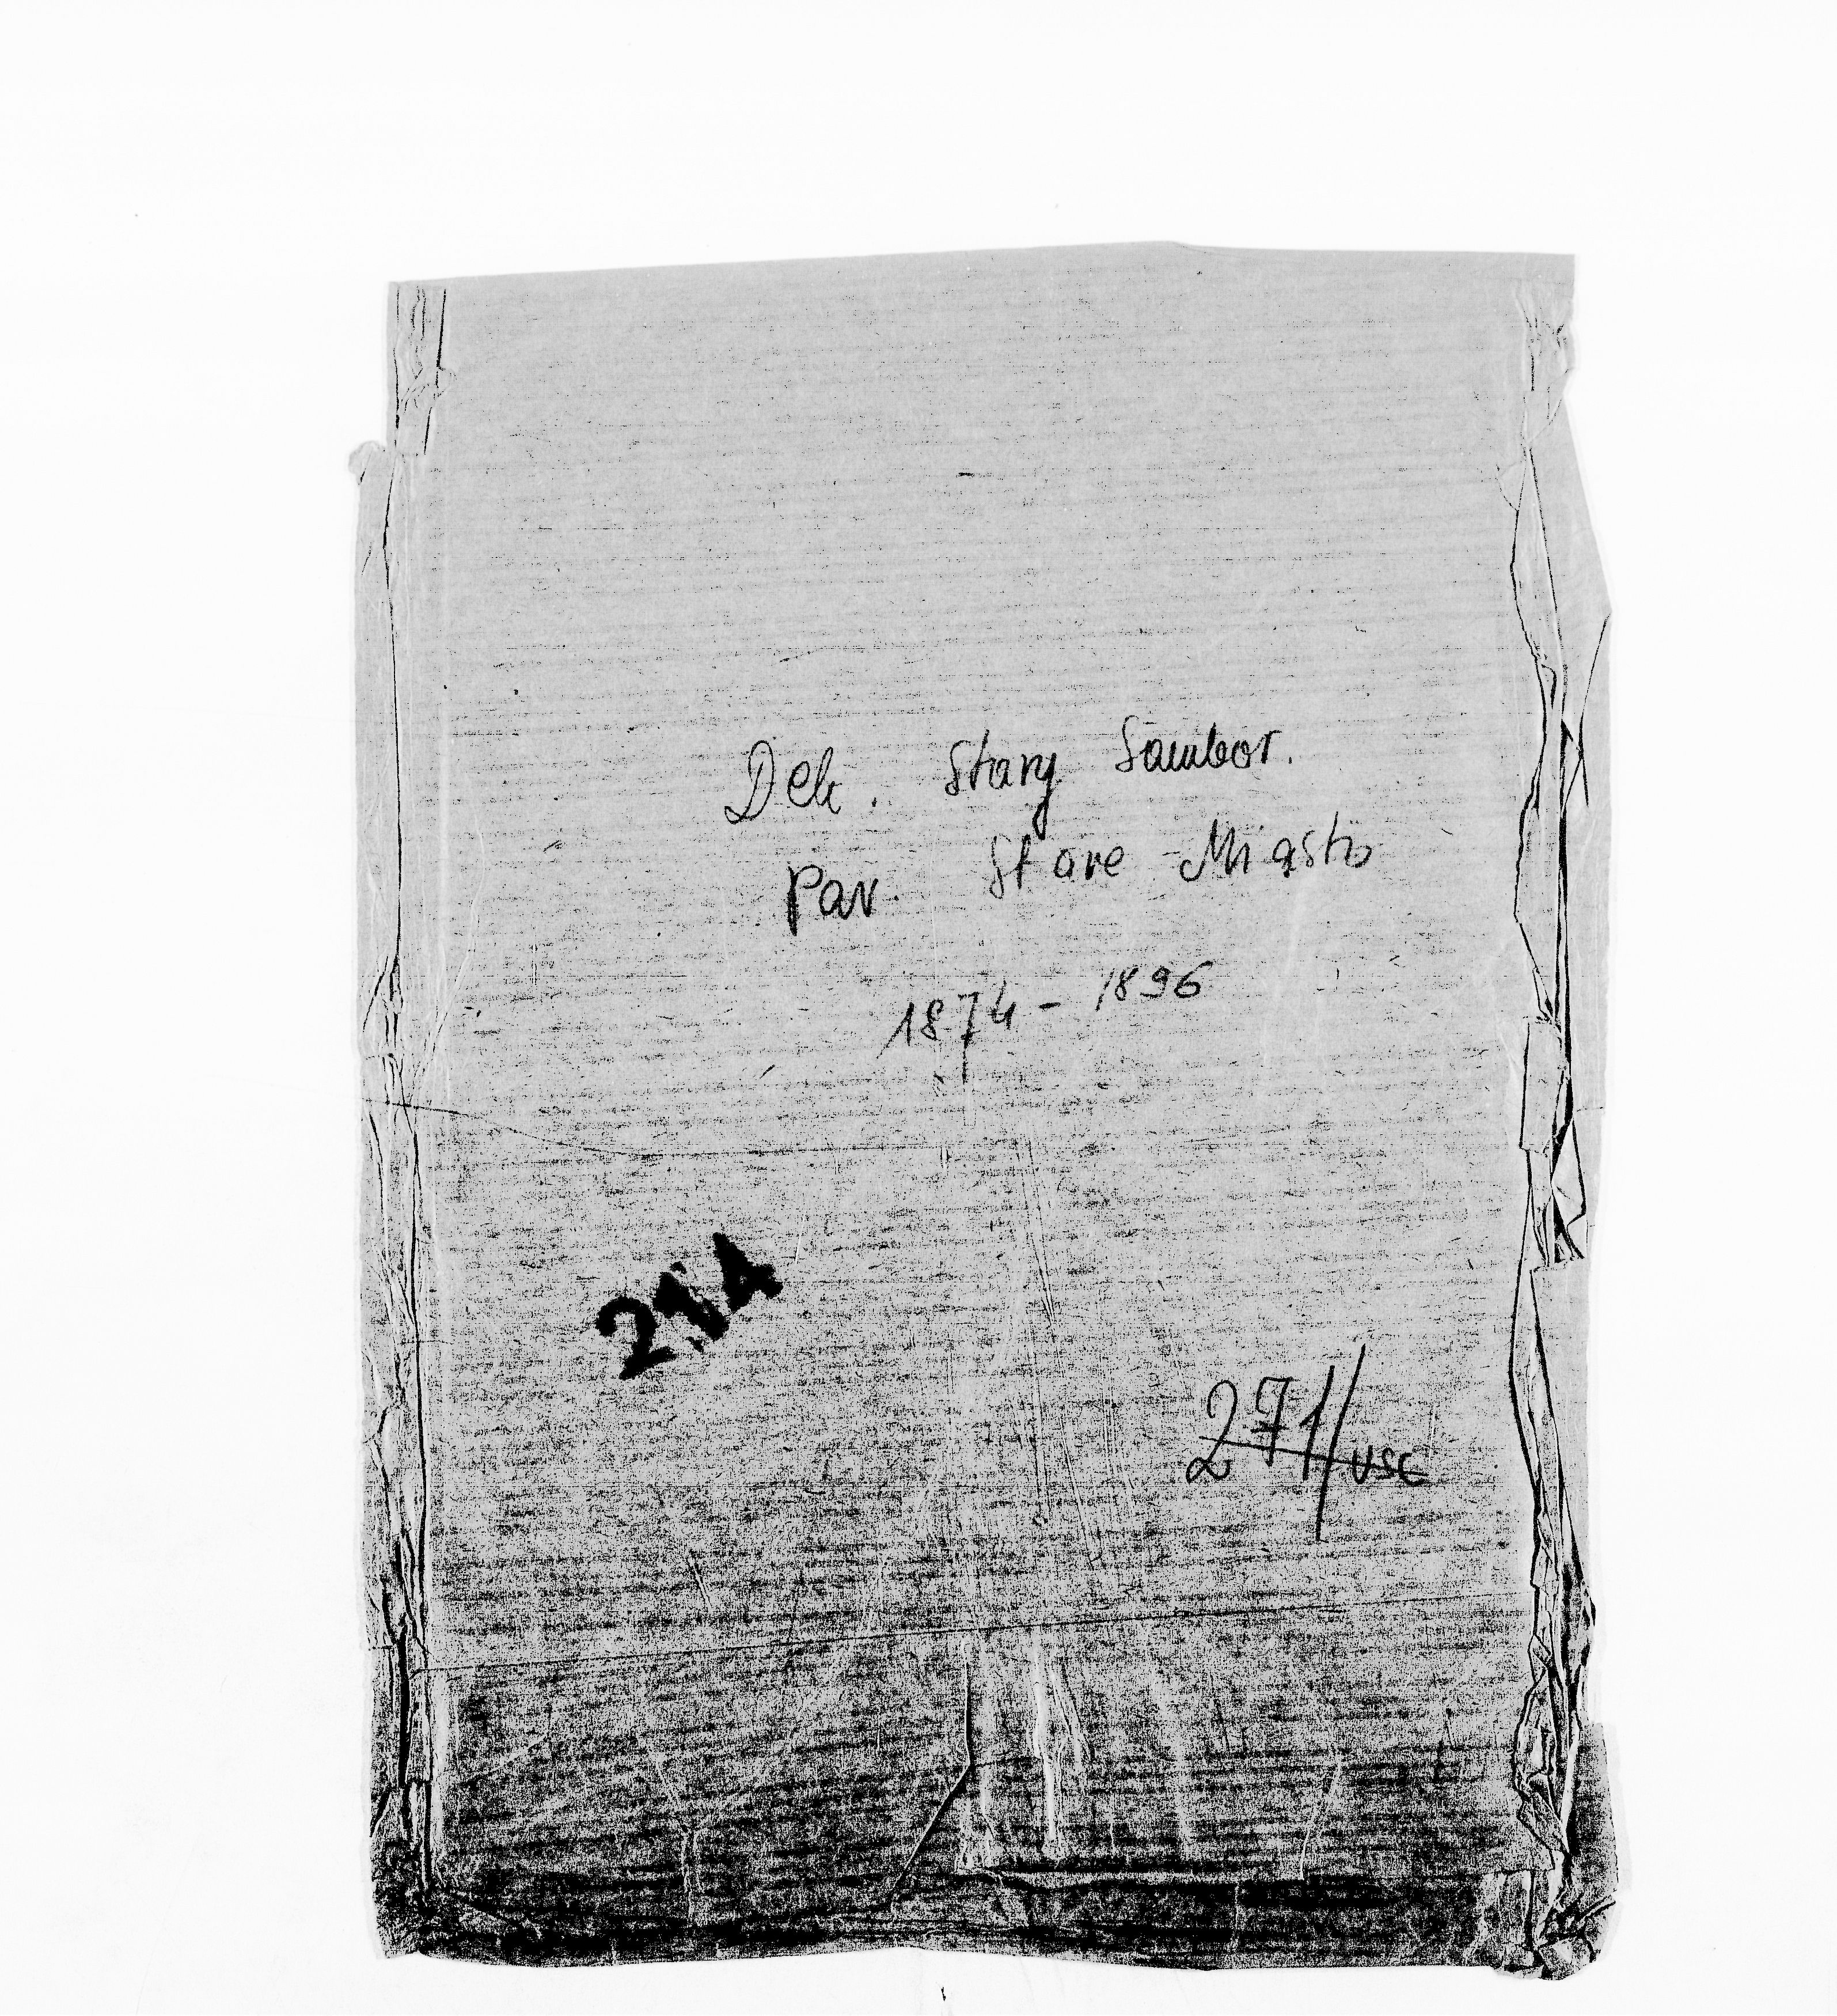 Dek. Stary Sambor.
Par. Stare-Miasto
1874 - 1896
271/USC